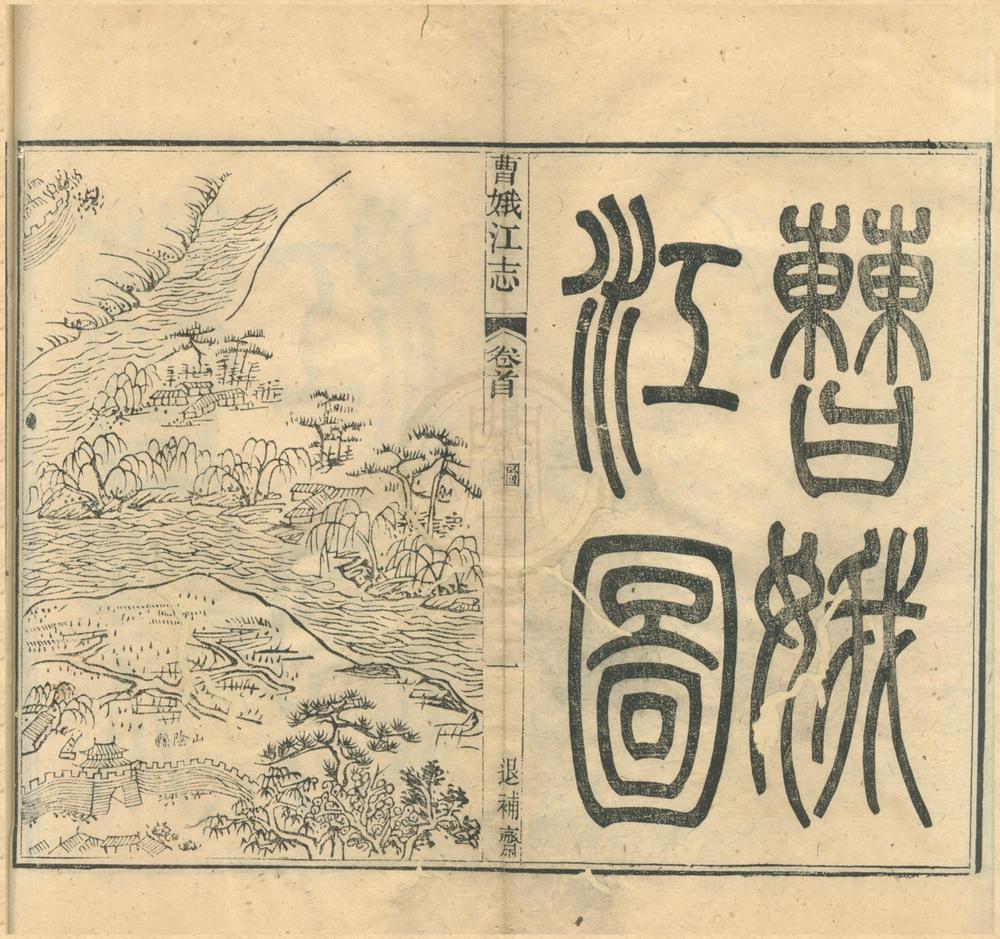 曹娥
江圖
曹娥江志
卷首
圖
一
退補齋
山陰縣